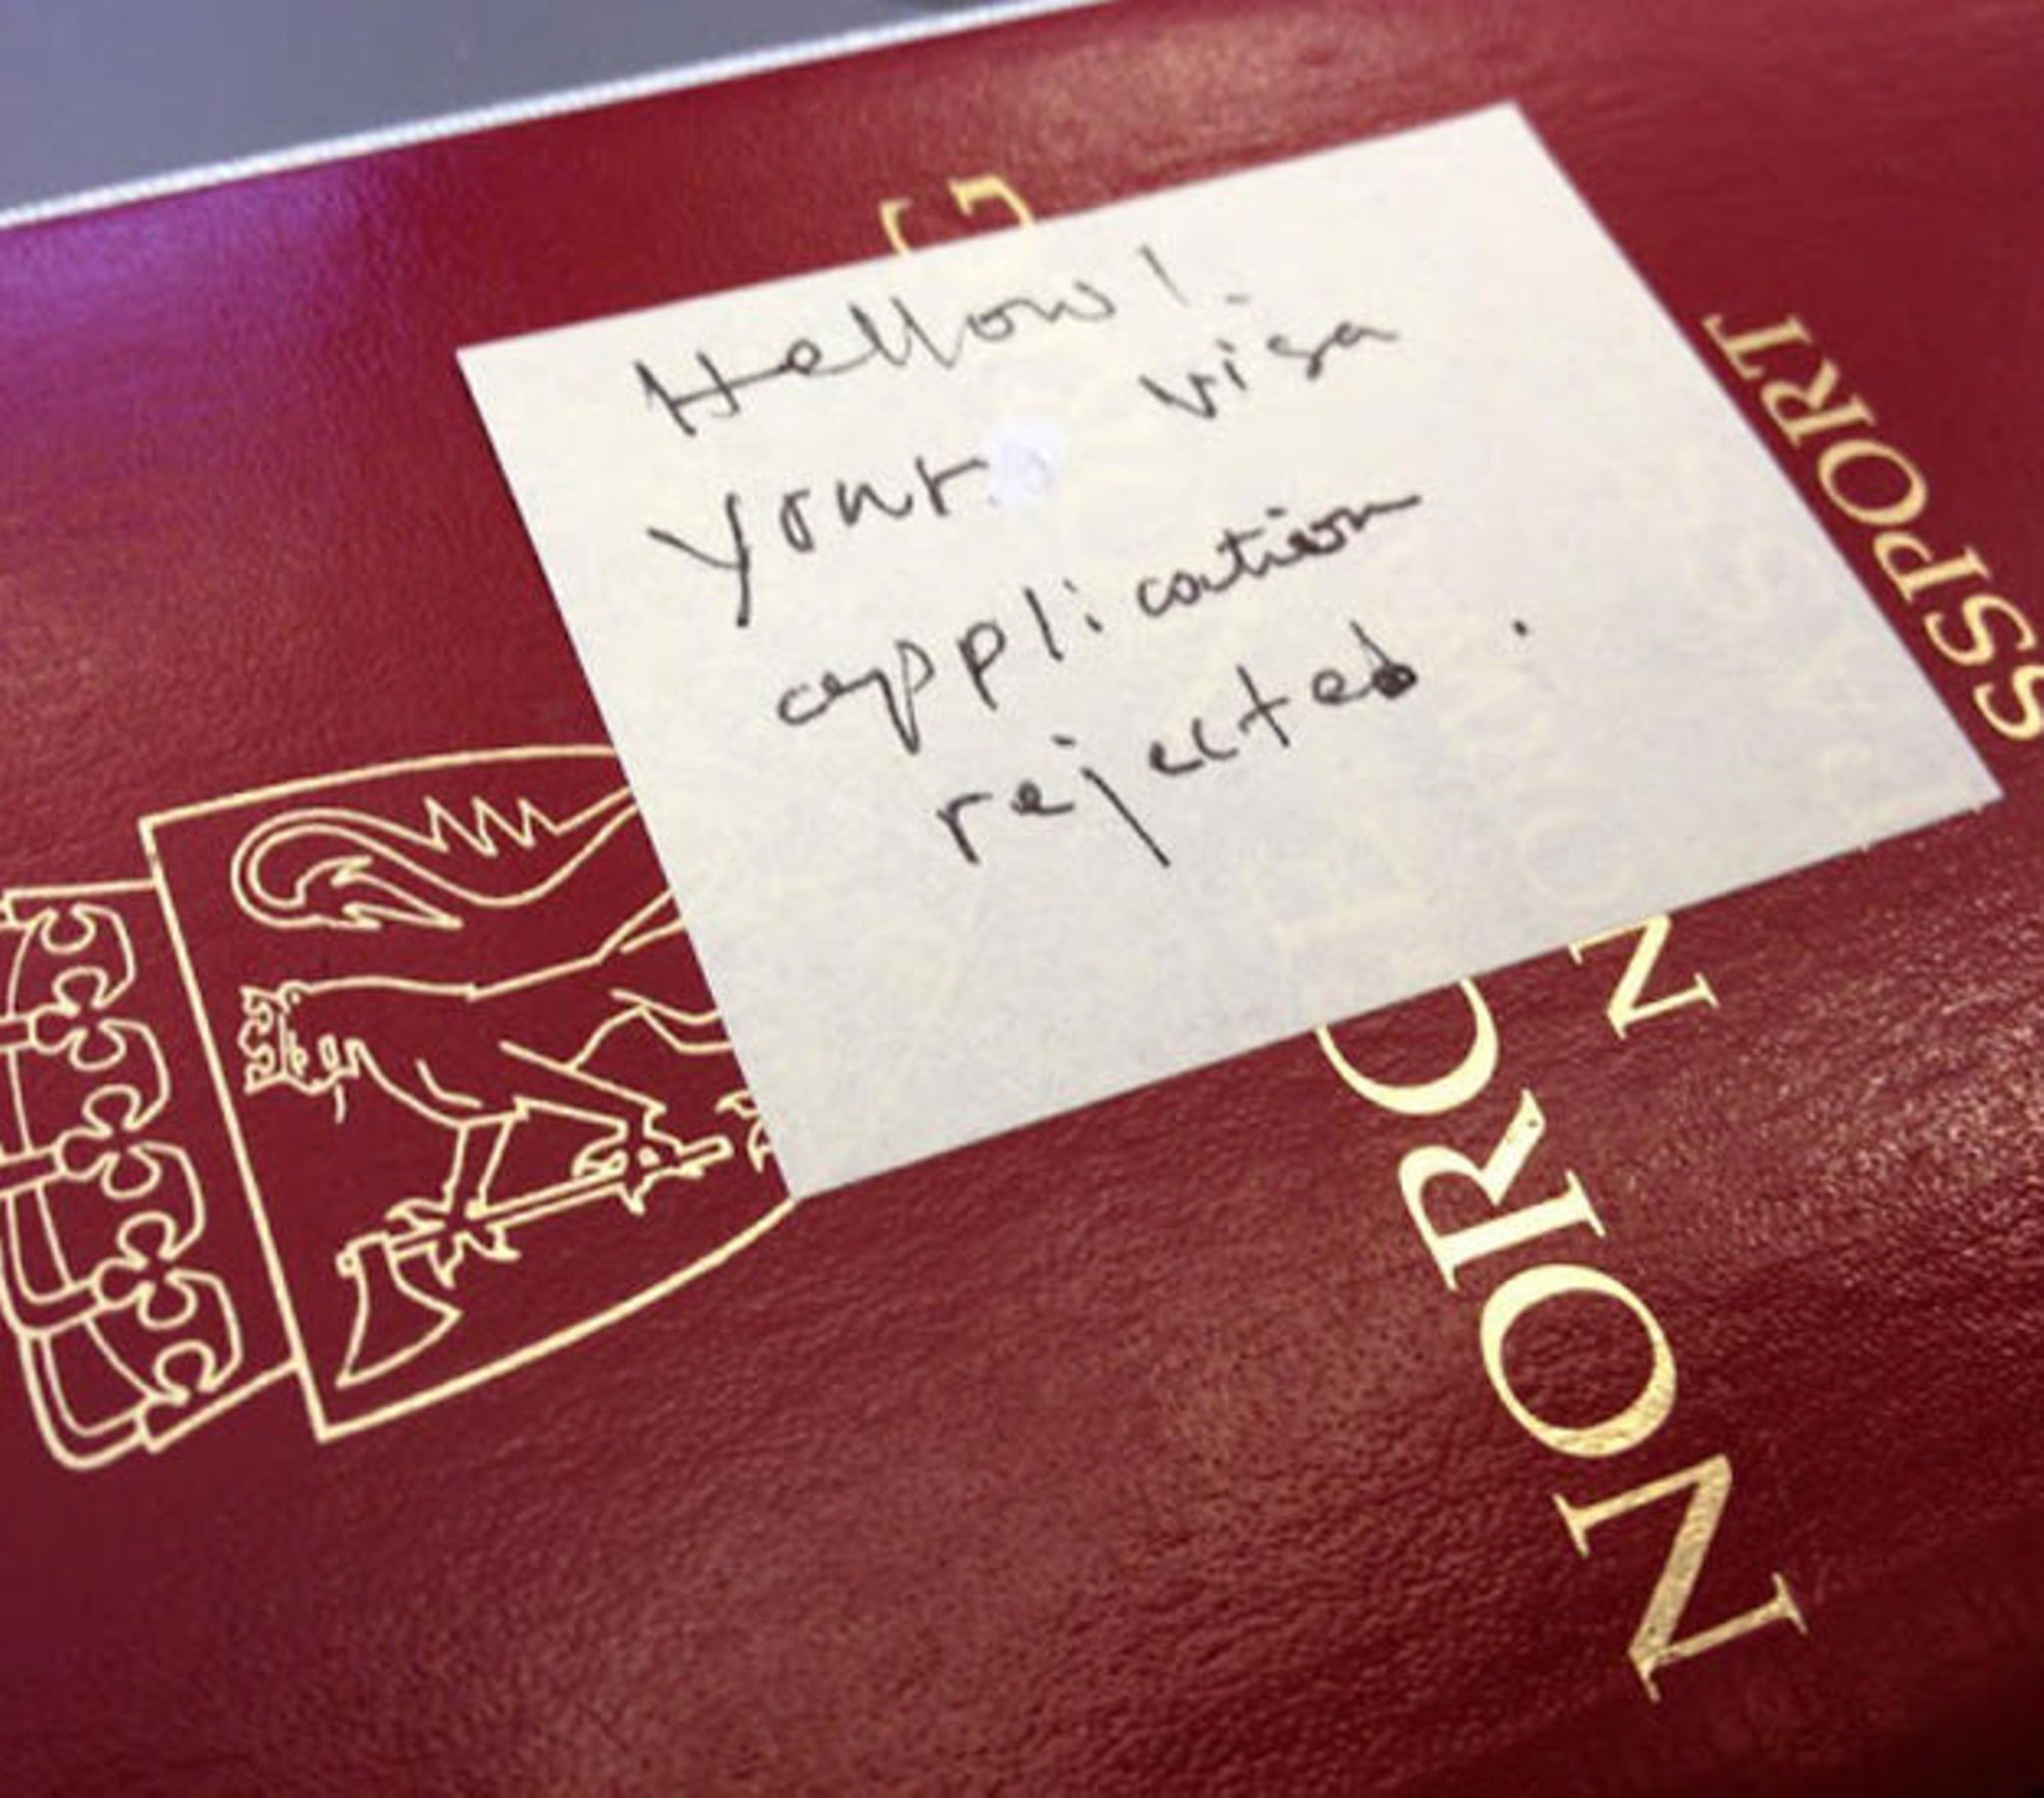 Hellow!
your visa
application
rejected.
NOR
N
SSPORT